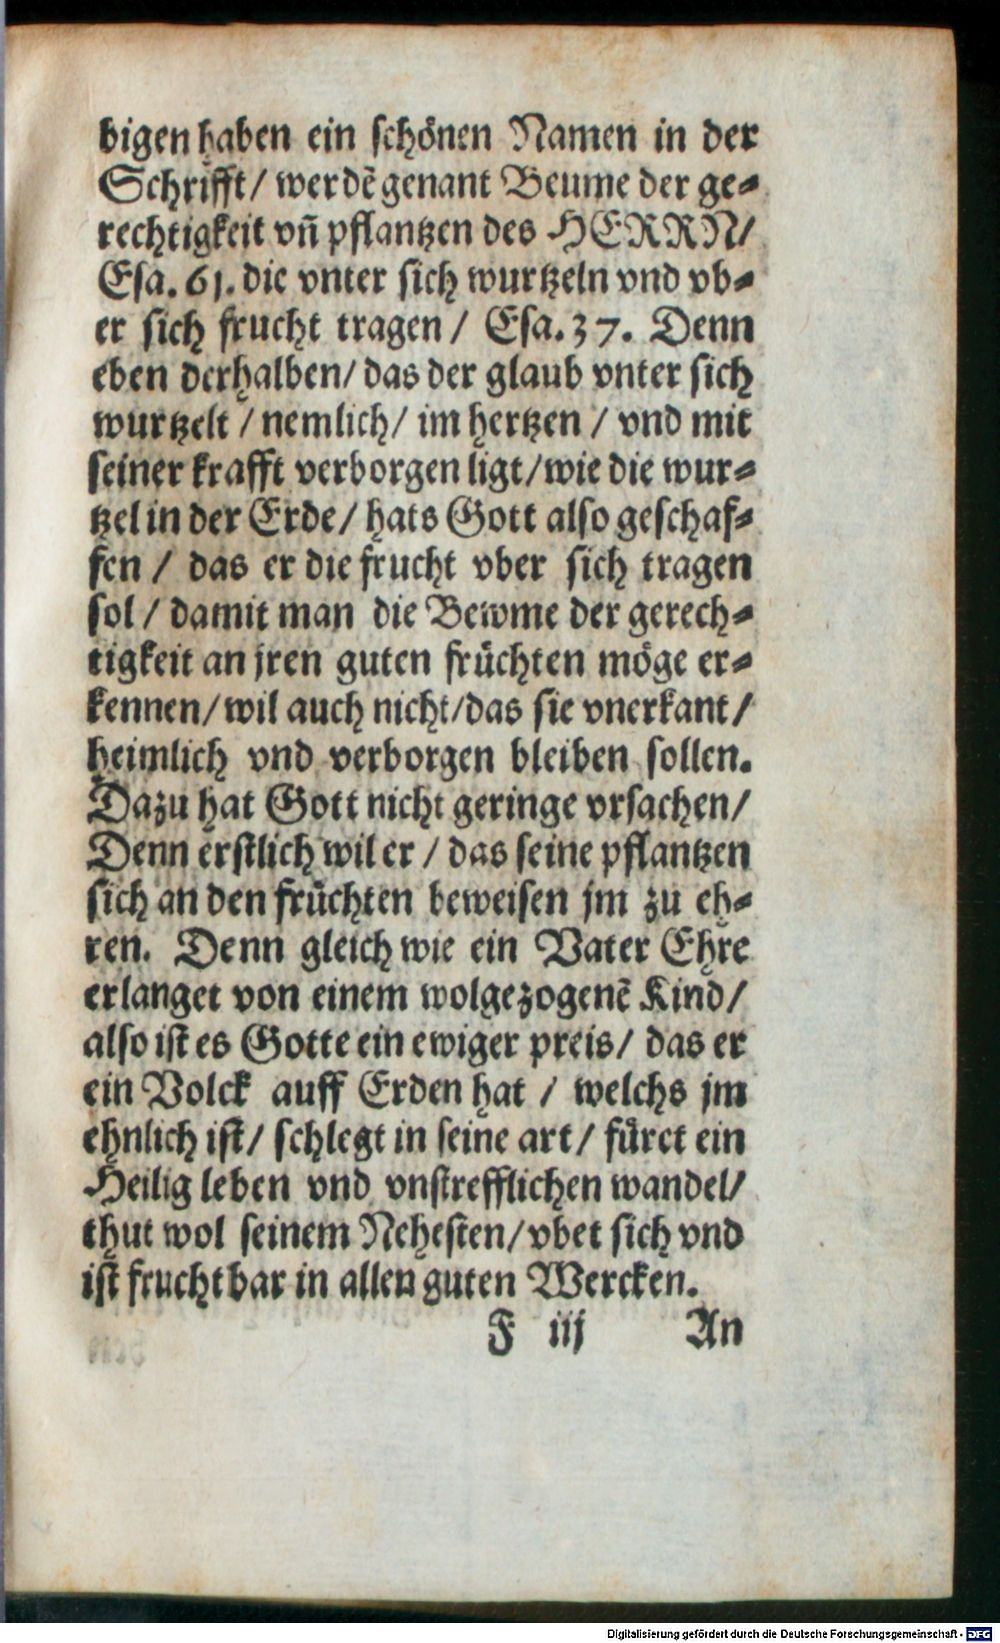 bigen haben ein schönen Namen in der
Schrifft/ werdē genant Beume der ge⸗
rechtigkeit vn̄ pflantzen des HERRN/
Esa. 61. die vnter sich wurtzeln vnd vb⸗
er sich frucht tragen/ Esa. 37. Denn
eben derhalben/ das der glaub vnter sich
wurtzelt / nemlich/ im hertzen / vnd mit
seiner krafft verborgen ligt/ wie die wur⸗
tzel in der Erde/ hats Gott also geschaf⸗
fen / das er die frucht vber sich tragen
sol / damit man die Bewme der gerech⸗
tigkeit an jren guten früchten möge er⸗
kennen/ wil auch nicht/das sie vnerkant/
heimlich vnd verborgen bleiben sollen.
Dazu hat Gott nicht geringe vrsachen/
Denn erstlich wil er / das seine pflantzen
sich an den früchten beweisen jm zu eh⸗
ren. Denn gleich wie ein Vater Ehre
erlanget von einem wolgezogenē Kind/
also ist es Gotte ein ewiger preis/ das er
ein Volck auff Erden hat / welchs jm
ehnlich ist/ schlegt in seine art/ füret ein
Heilig leben vnd vnstrefflichen wandel/
thut wol seinem Nehesten/ vbet sich vnd
ist fruchtbar in allen guten Wercken.
F iij An
Digitalisierung gefördert durch die Deutsche Forschungsgemeinschaft - DFG